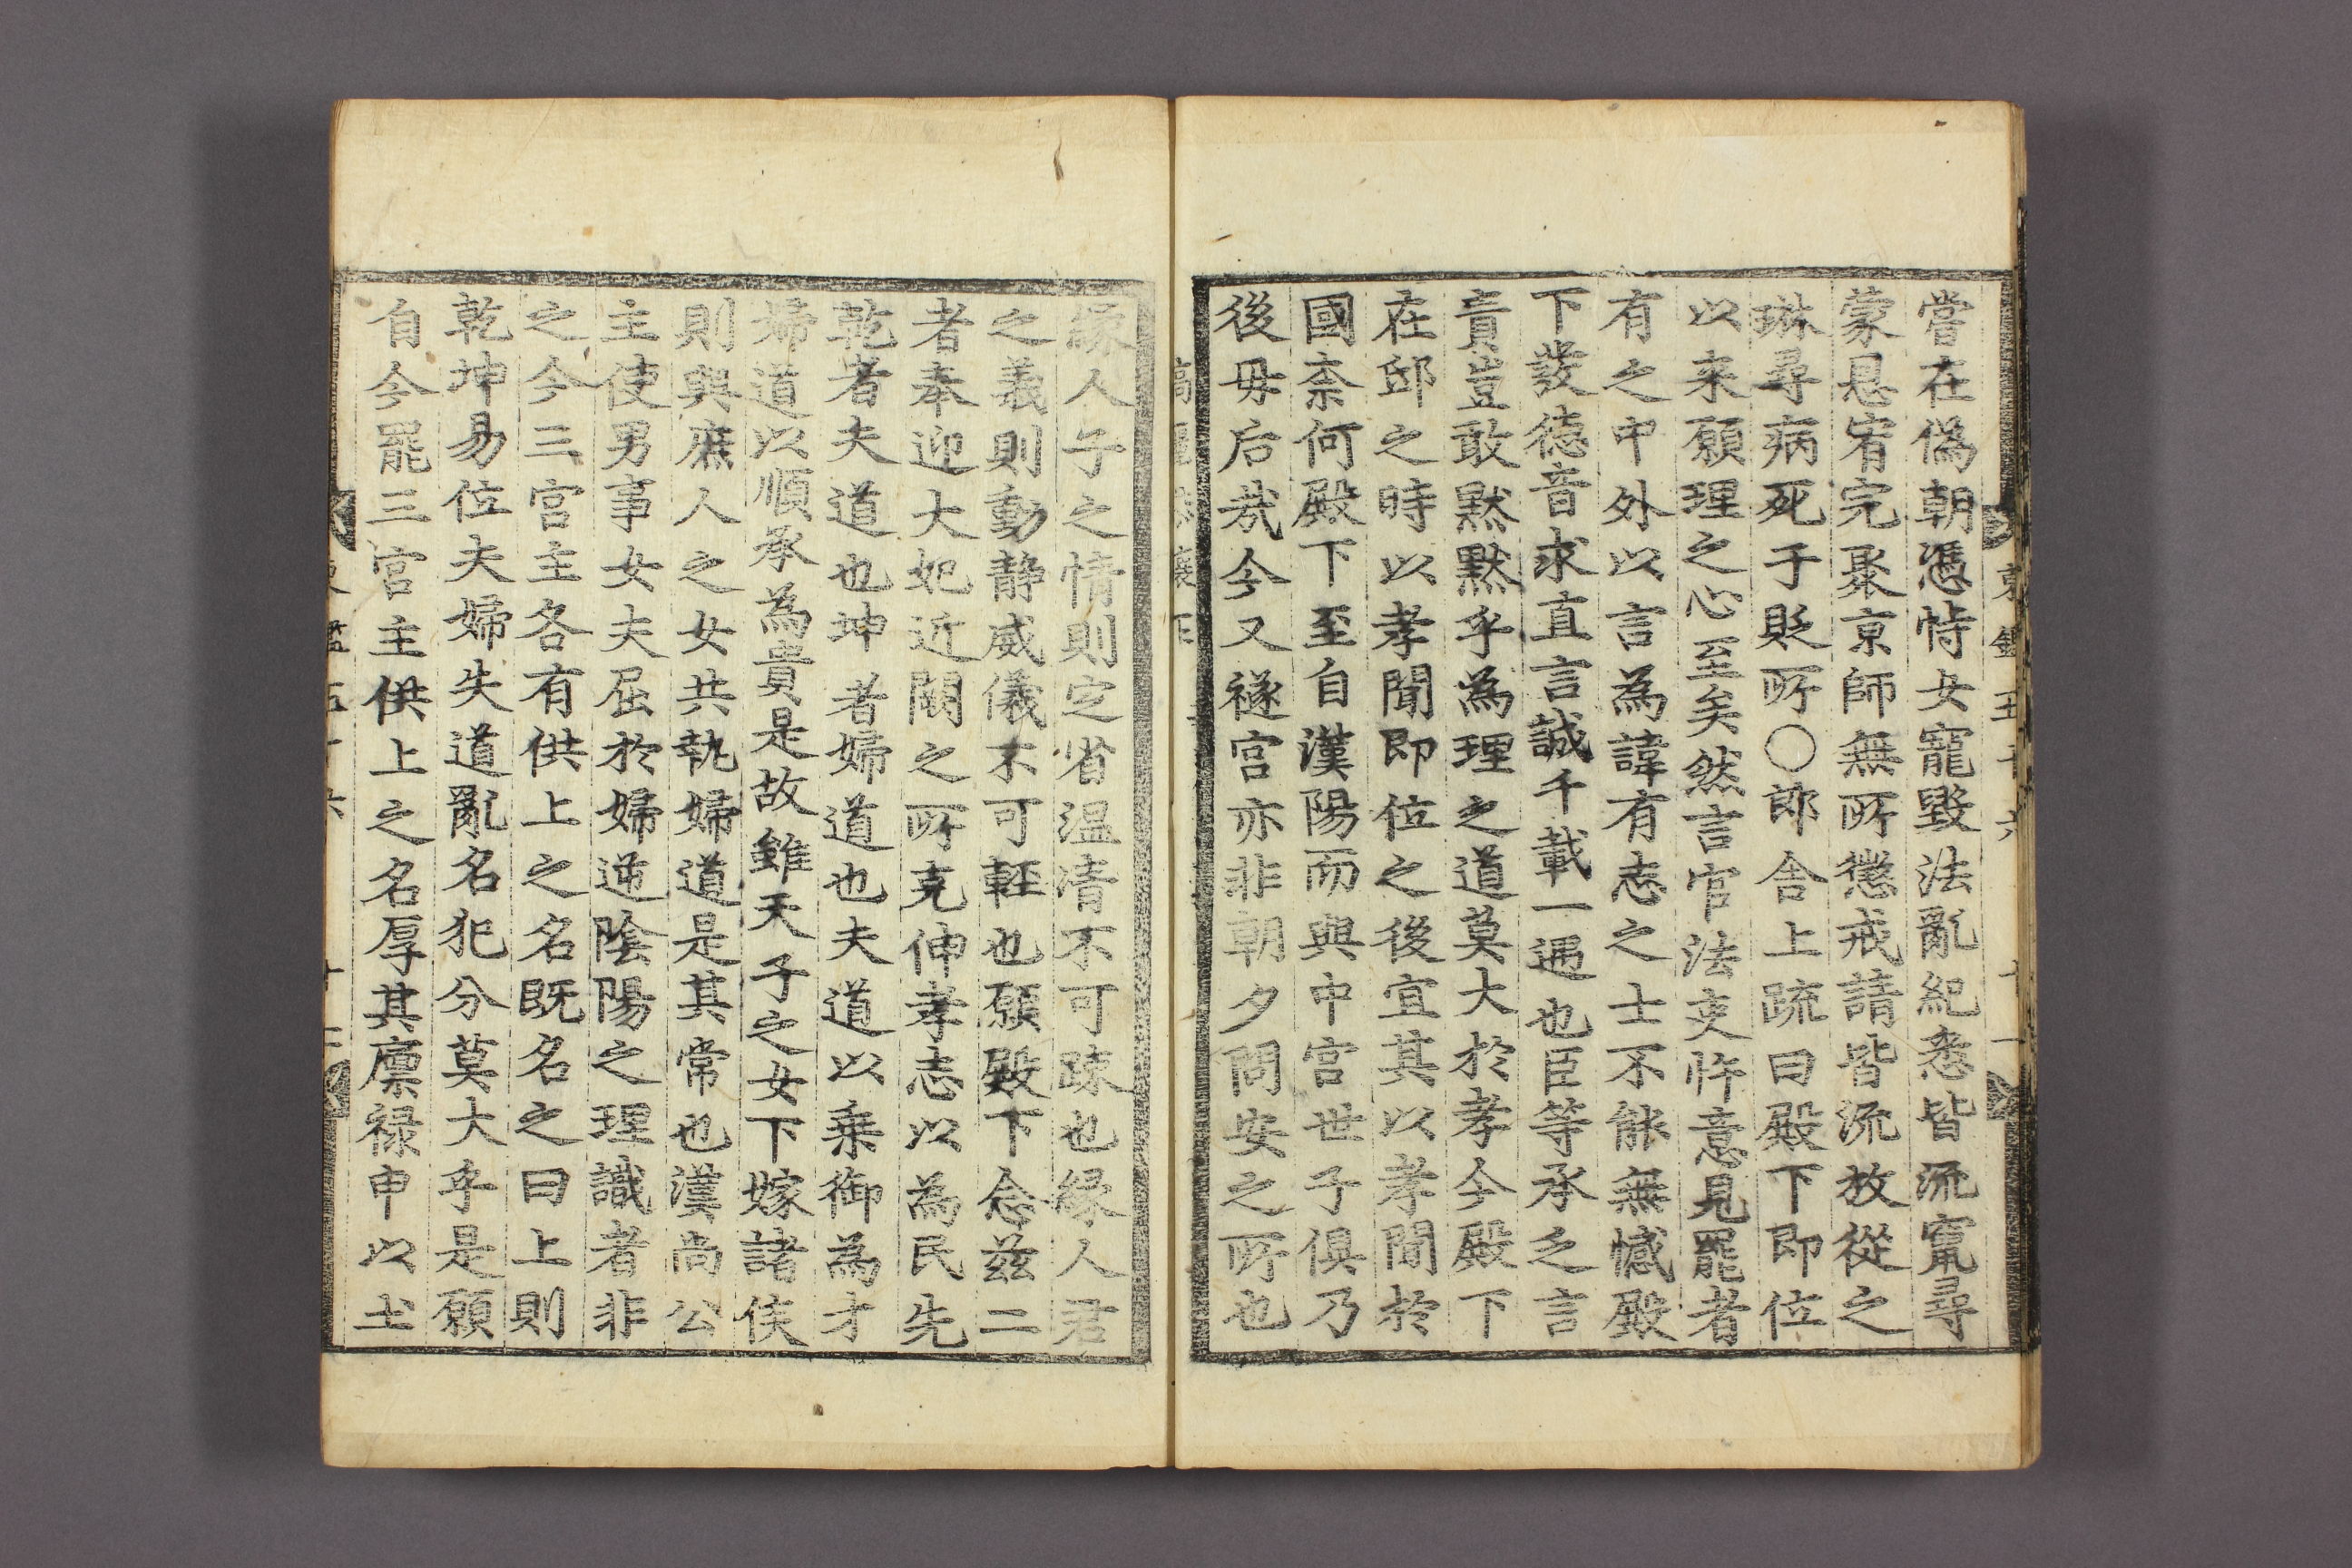 嘗在僞朝憑恃女寵毀法亂紀悉皆流竄尋
蒙恩宥完聚京師無所懲戒請皆流放從之
琳尋病死于貶所○郎舍上疏曰殿下即位
以来願理之心至矣然言官法吏忤意見罷者
有之中外以言為諱有志之士不能無憾殿
下發德音求直言誠千載一遇也臣等承乏言
責豈敢黙黙乎為理之道莫大於孝今殿下
在邸之時以孝聞即位之後宜其以孝聞於
國柰何殿下至自漢陽而與中宮世子俱乃
後毋后哉今又邃宮亦非朝夕問安之所也
緣人子之情則定省温凊不可踈也縁人君
之義則動静威儀不可輕也願殿下念兹二
者奉迎大妃近闕之所克伸孝志以為民先
乾者夫道也坤者婦道也夫道以乗御為才
婦道以順承為貴是故雖天子之女下嫁諸侯
則與庶人之女共執婦道是其常也漢尚公
主使男事女夫屈於婦逆陰陽之理識者非
之今三宮主各有供上之名既名之曰上則
乾坤易位夫婦失道亂名犯分莫大乎是願
自今罷三宮主供上之名厚其廪禄申以士
東鑑五十六
十二